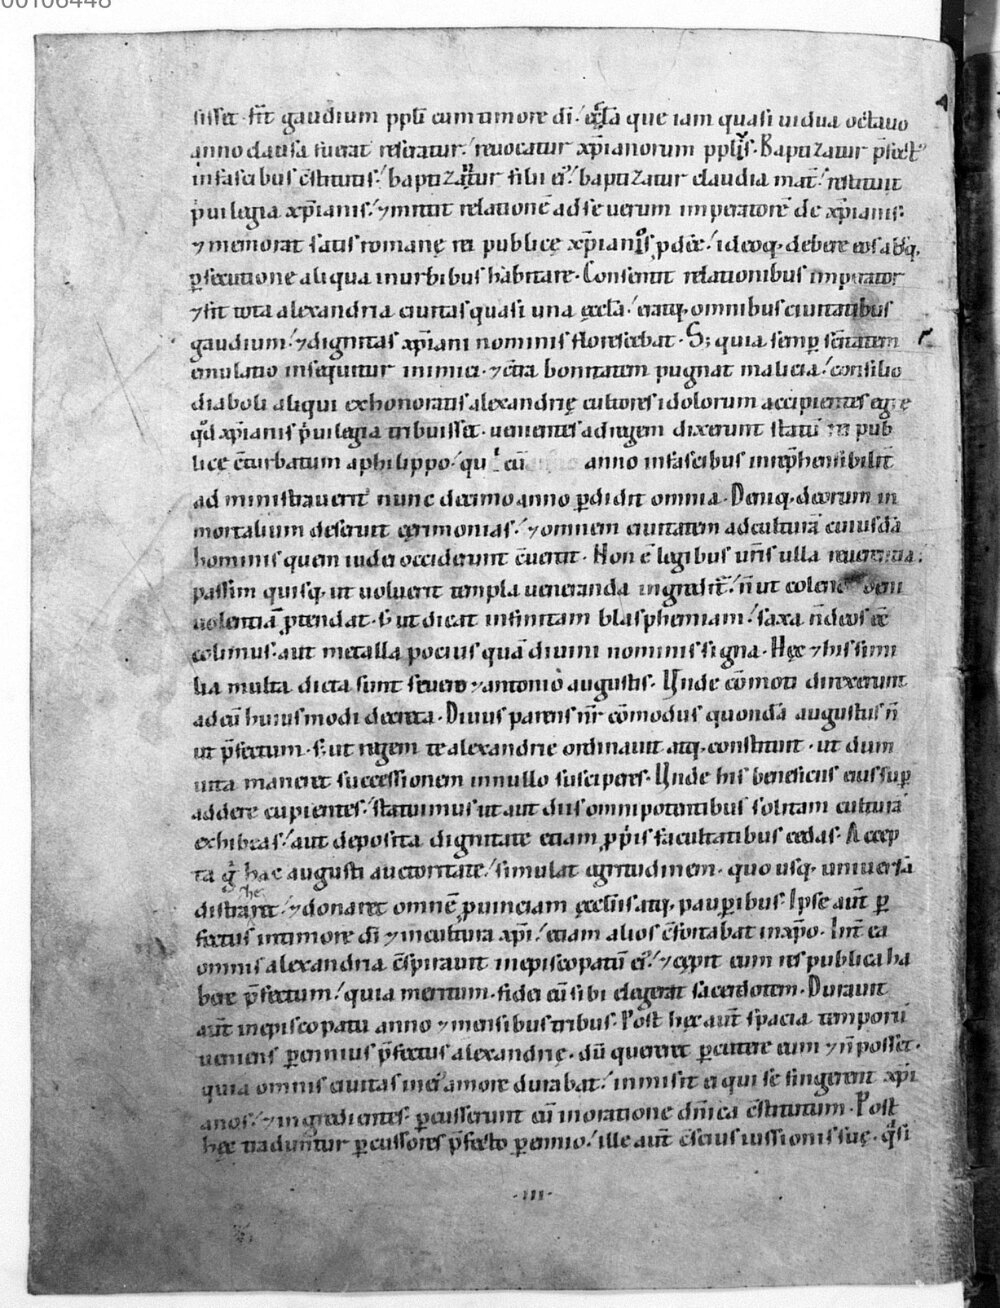 00106448
sisset· fit gaudium ppłi cum timore di᷎· ęccła que iam quasi uidua octauo
anno clausa fuerat reseratur᷎· reuocatur xp̄ianorum pplūs· Baptizatur p̄fect᷒
infascibus c̄stitutus᷎· baptizantur filii ei᷎᷒· baptizatur claudia mat᷎̄· restituit
p̓uilegia xp̄ianis᷎· ⁊mittit relationē adseuerum imperatorē de xp̄ianis·
⁊ memorat satis romanę rei publicę xp̄ianos ꝓdēē᷎· ideoq· debere eos absq·
ꝑsecutione aliqua inurbibus habitare· Consentit relationibus imperator
⁊fit tota alexandria ciuitas quasi una ęccła᷎· etatq· omnibus ciuitatibus
gaudium᷎· ⁊dignitas xp̄iani nominis florescebat· S; quia semꝑ sc̄itatem
emulatio insequitur inimici· ⁊c̄tra bonitatem pugnat malicia᷎· consilio
diaboli aliqui exhonoratis alexandrię cultores idolorum accipientes egre
qd̄ xp̄ianis p̓uilegia tribuisset· uenientes adregem dixerunt statū rei pub
licę c̄turbatum aphilippo᷎· qui cū anno infascibus inrep̄hensibilit̄
ad ministrauerit nunc decimo anno ꝑdidit omnia· Deniq· deorum in
mortalium deseruit cęrimonias᷎· ⁊omnem ciuitatem adculturā cuiusdā
hominis quem iudei occiderunt c̄uertit· Non ē legibus ur̄is ulla reuerentia·
passim quisq· ut uoluerit templa ueneranda ingredit᷎̄· n̄ ut colendi deū
uolentiā ꝓtendat· s; ut dicat infinitam blasphemiam᷎· saxa n̄deos ēē
colimus· aut metalla pocius quā diuini nominis signa· Hęc ⁊ his simi
lia multa dicta sunt seuero ⁊antonio augustis· Unde cōmoti direxerunt
adeū huiusmodi decreta· Diuus parens nr̄ cōmodus quondā augustus n̄
ut p̄fectum· s; ut regem te alexandrie ordinauit atq· constituit· ut dum
uita maneret successionem innullo susciperes· Unde his beneficiis eius suꝑ
addere cupientes᷎· statuimus ut aut diis omnipotentibus solitam culturā
exhibeas᷎· aut deposita dignitate etiam ꝓp̓is facultatibus cedas· Accep
ta g̊ hac augusti auctoritate᷎· simulat egritudinem· quo usq· uniuersa
distraheret᷎· ⁊donaret omnē ꝓuinciam ęccłiis atq· pauꝑibus· Ipse aut̄ ꝑ
fectus intimore di᷎ ⁊incultura xp̄i᷎· etiam alios c̄fortabat inxp̄o· Int̄ ea
omnis alexandria c̄spirauit inepiscopatū ei᷎᷒· ⁊cępit eum res publica ha
bere p̄fectum᷎· quia meritum· fidei eū sibi elegerat sacerdotem· Durauit
aut̄ inepiscopatu anno ⁊mensibus tribus· Post hęc aut̄ spacia temporū
ueniens ꝑennius p̄fectus alexandrię· dū quereret ꝑcutere eum ⁊n̄ posset·
quia omnis ciuitas inei᷒ amore durabat᷎· inmisit ei qui se fingerent xp̄i
anos᷎· ⁊ingredientes· ꝑcusserunt eū inoratione dn̄ica c̄stitutum· Post
hęc traduntur ꝑcussores p̄fecto ꝑennio᷎· ille aut̄ c̄scius iussionis suę· q̓si
·III·